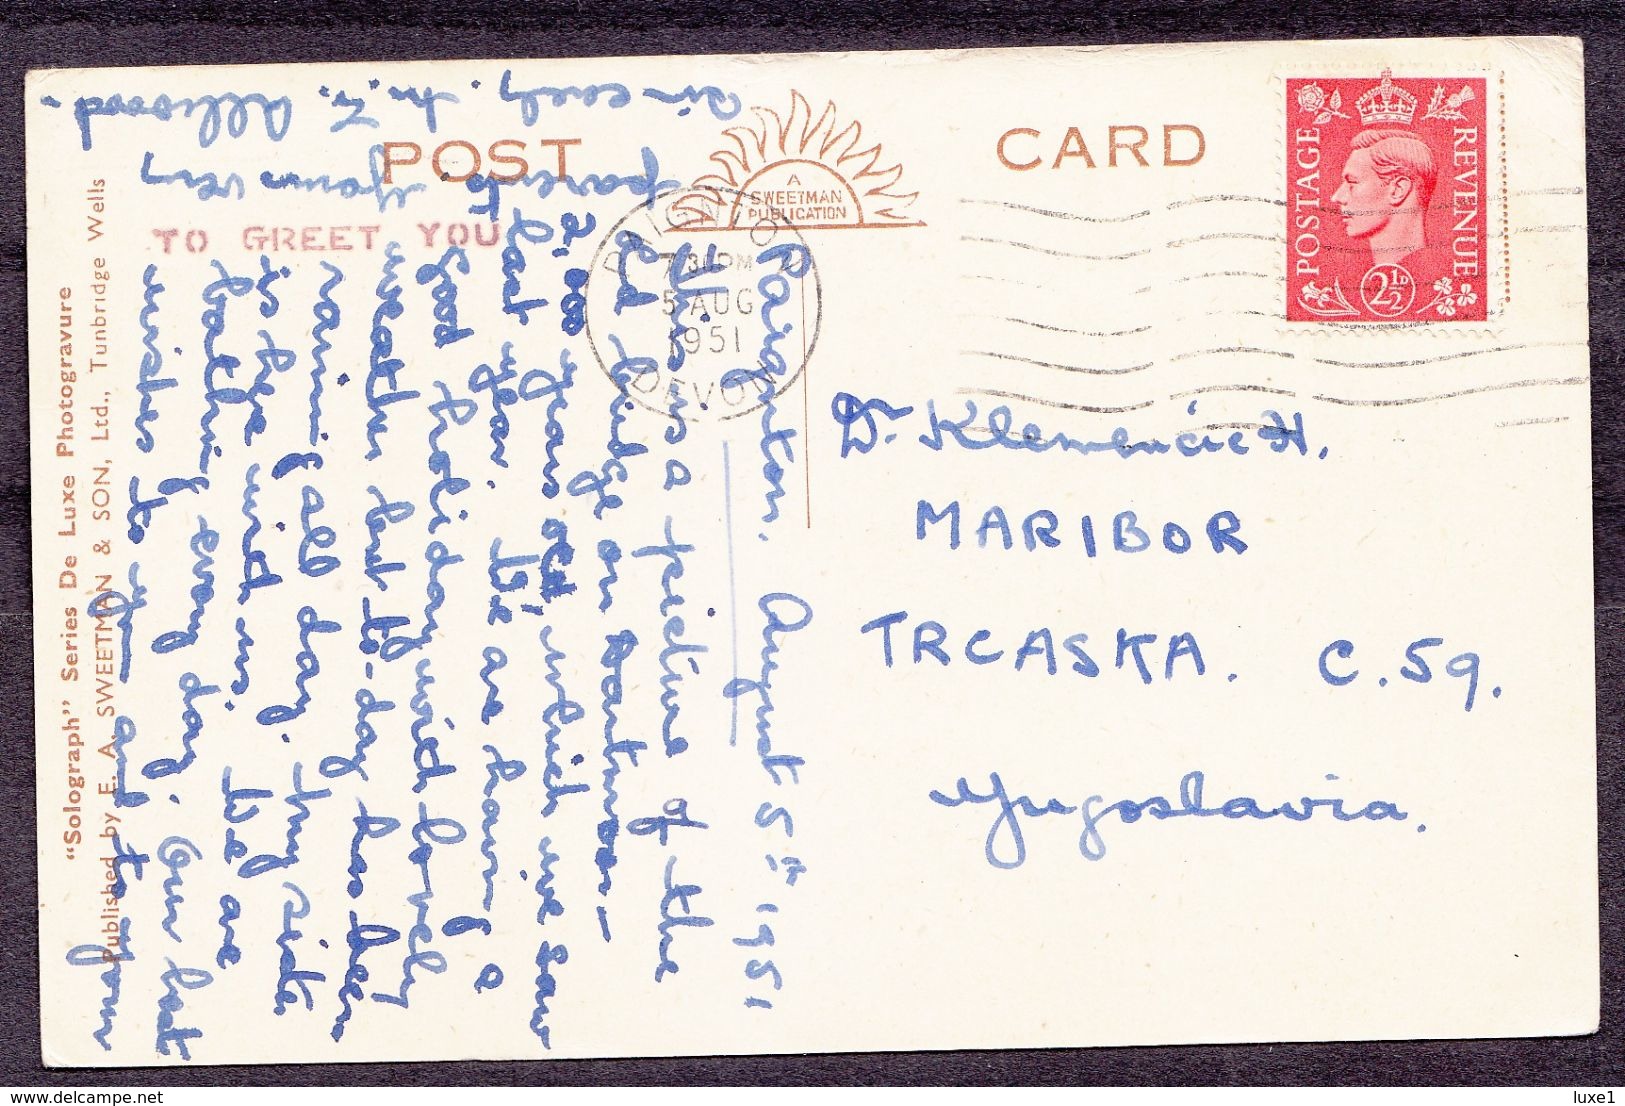 POST CARD
A
SWEETMAN
PUBLICATION
TO GREET YOU
"Solograph" Series De Luxe Photogravure
Published by E. A. SWEETMAN & SON, Ltd., Tunbridge Wells
PAIGNTON
7 30 PM
5 AUG
1951
DEVON
POSTAGE
REVENUE
2½D
Paignton. August 5th 1951
This is a picture of the
old bridge on Dartmoor
a 200 years old, which we saw
last year. We are having a
good holiday with lovely
weather but to-day has been
raining all day. My sister
is here with us. We are
bathing every day. Our best
wishes to you and to your
parents
Yours very
sincerely. M. F. Allwood.
Dr. Klemencic H.
MARIBOR
TRCASKA. C. 59.
Yugoslavia.
luxe1